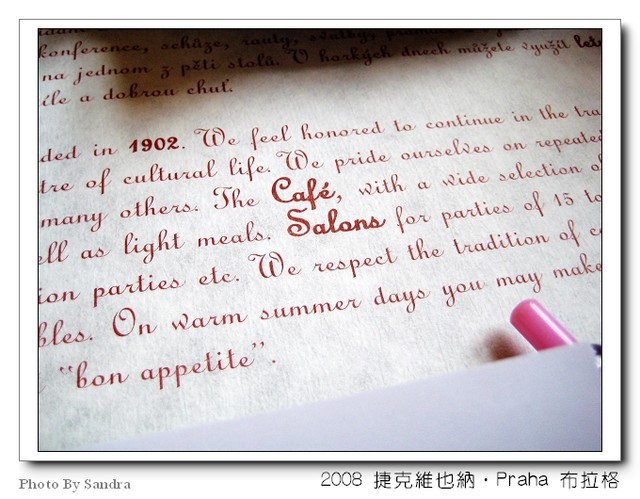 konference, schůze, rauty, svatby, promoce
na jednom z pěti stolů. V horkých dnech můžete využít let
íle a dobrou chuť.
ded in 1902. We feel honored to continue in the tra
tre of cultural life. We pride ourselves on repeated
many others. The Café, with a wide selection of
ell as light meals. Salons for parties of 15 to
ion parties etc. We respect the tradition of c
bles. On warm summer days you may make
"bon appetite".
Photo By Sandra
2008 捷克維也納・Praha 布拉格